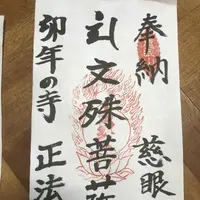 奉納
文殊菩薩
慈眼
卯年の寺
正法